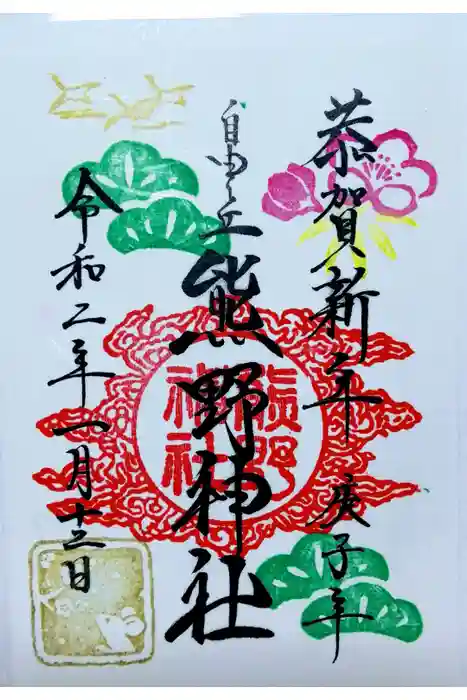 恭賀新年 庚子年
自由ヶ丘
熊野神社
熊野
神社
令和二年一月十三日